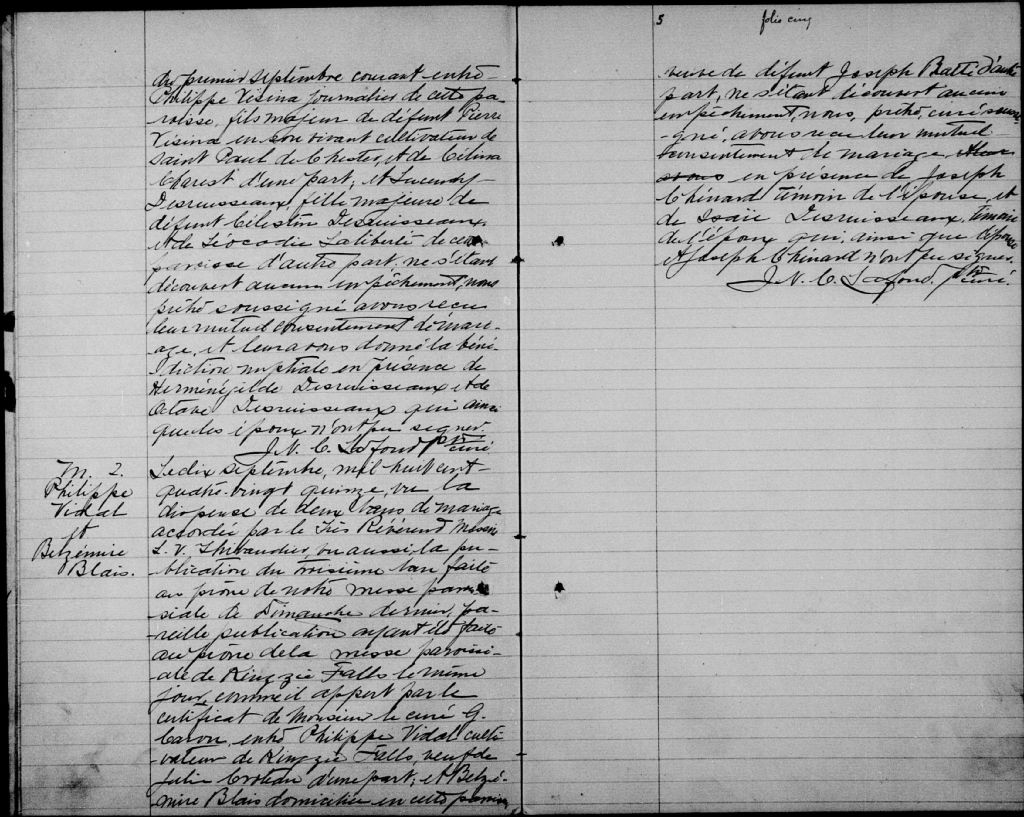 du premier septembre courant entre
Philippe Visina journalier de cette pa-
roisse, fils majeur de défunt Pierre
Visina en son vivant cultivateur de
saint Paul de Chester, et de Célina
Charest d'une part; et
Desruisseaux, fille majeure de
défunt Célestin Desruisseaux,
et de Léocadie Laliberté de cette
paroisse d'autre part, ne s'étant
découvert aucun empêchement, nous
prêtre soussigné avons reçu
leur mutuel consentement de mari-
age, et leur avons donné la béné-
diction nuptiale en présence de
Herménégilde Desruisseaux et de
Octave Desruisseaux qui ainsi
que les époux n'ont pu signer.
J. N. C. Lafond ptre curé
M. 2.
Philippe
Vidal
et
Belzémire
Blais.
Le dix septembre, mil huit cent
quatre-vingt quinze, vu la
dispense de deux bans de mariage
accordée par le Très Révérend Messire
L. V. Thibaudier, vu aussi la pu-
-blication du troisième ban faite
au prône de notre messe parois-
siale de Dimanche dernier, pa-
-reille publication ayant été faite
au prône de la messe paroissi-
ale de Kingzie Falls le même
jour, comme il appert par le
certificat de Monsieur le curé G.
Caron, entre Philippe Vidal culti-
-vateur de Kingzie Falls, veuf de
Julie Croteau d'une part; et Belzé-
-mire Blais domiciliée en cette paroisse
5 folio cinq
veuve de défunt Joseph d'autre
part, ne s'étant découvert aucun
empêchement, nous, prêtre, curé soussi-
gné, avons reçu leur mutuel
consentement de mariage,
en présence de Joseph
Chénard témoin de l'épouse, et
de Isaïe Desruisseaux, témoin
de l'époux qui, ainsi que l'épouse
et Joseph Chénard n'ont pu signer.
J. N. C. Lafond. ptre curé.